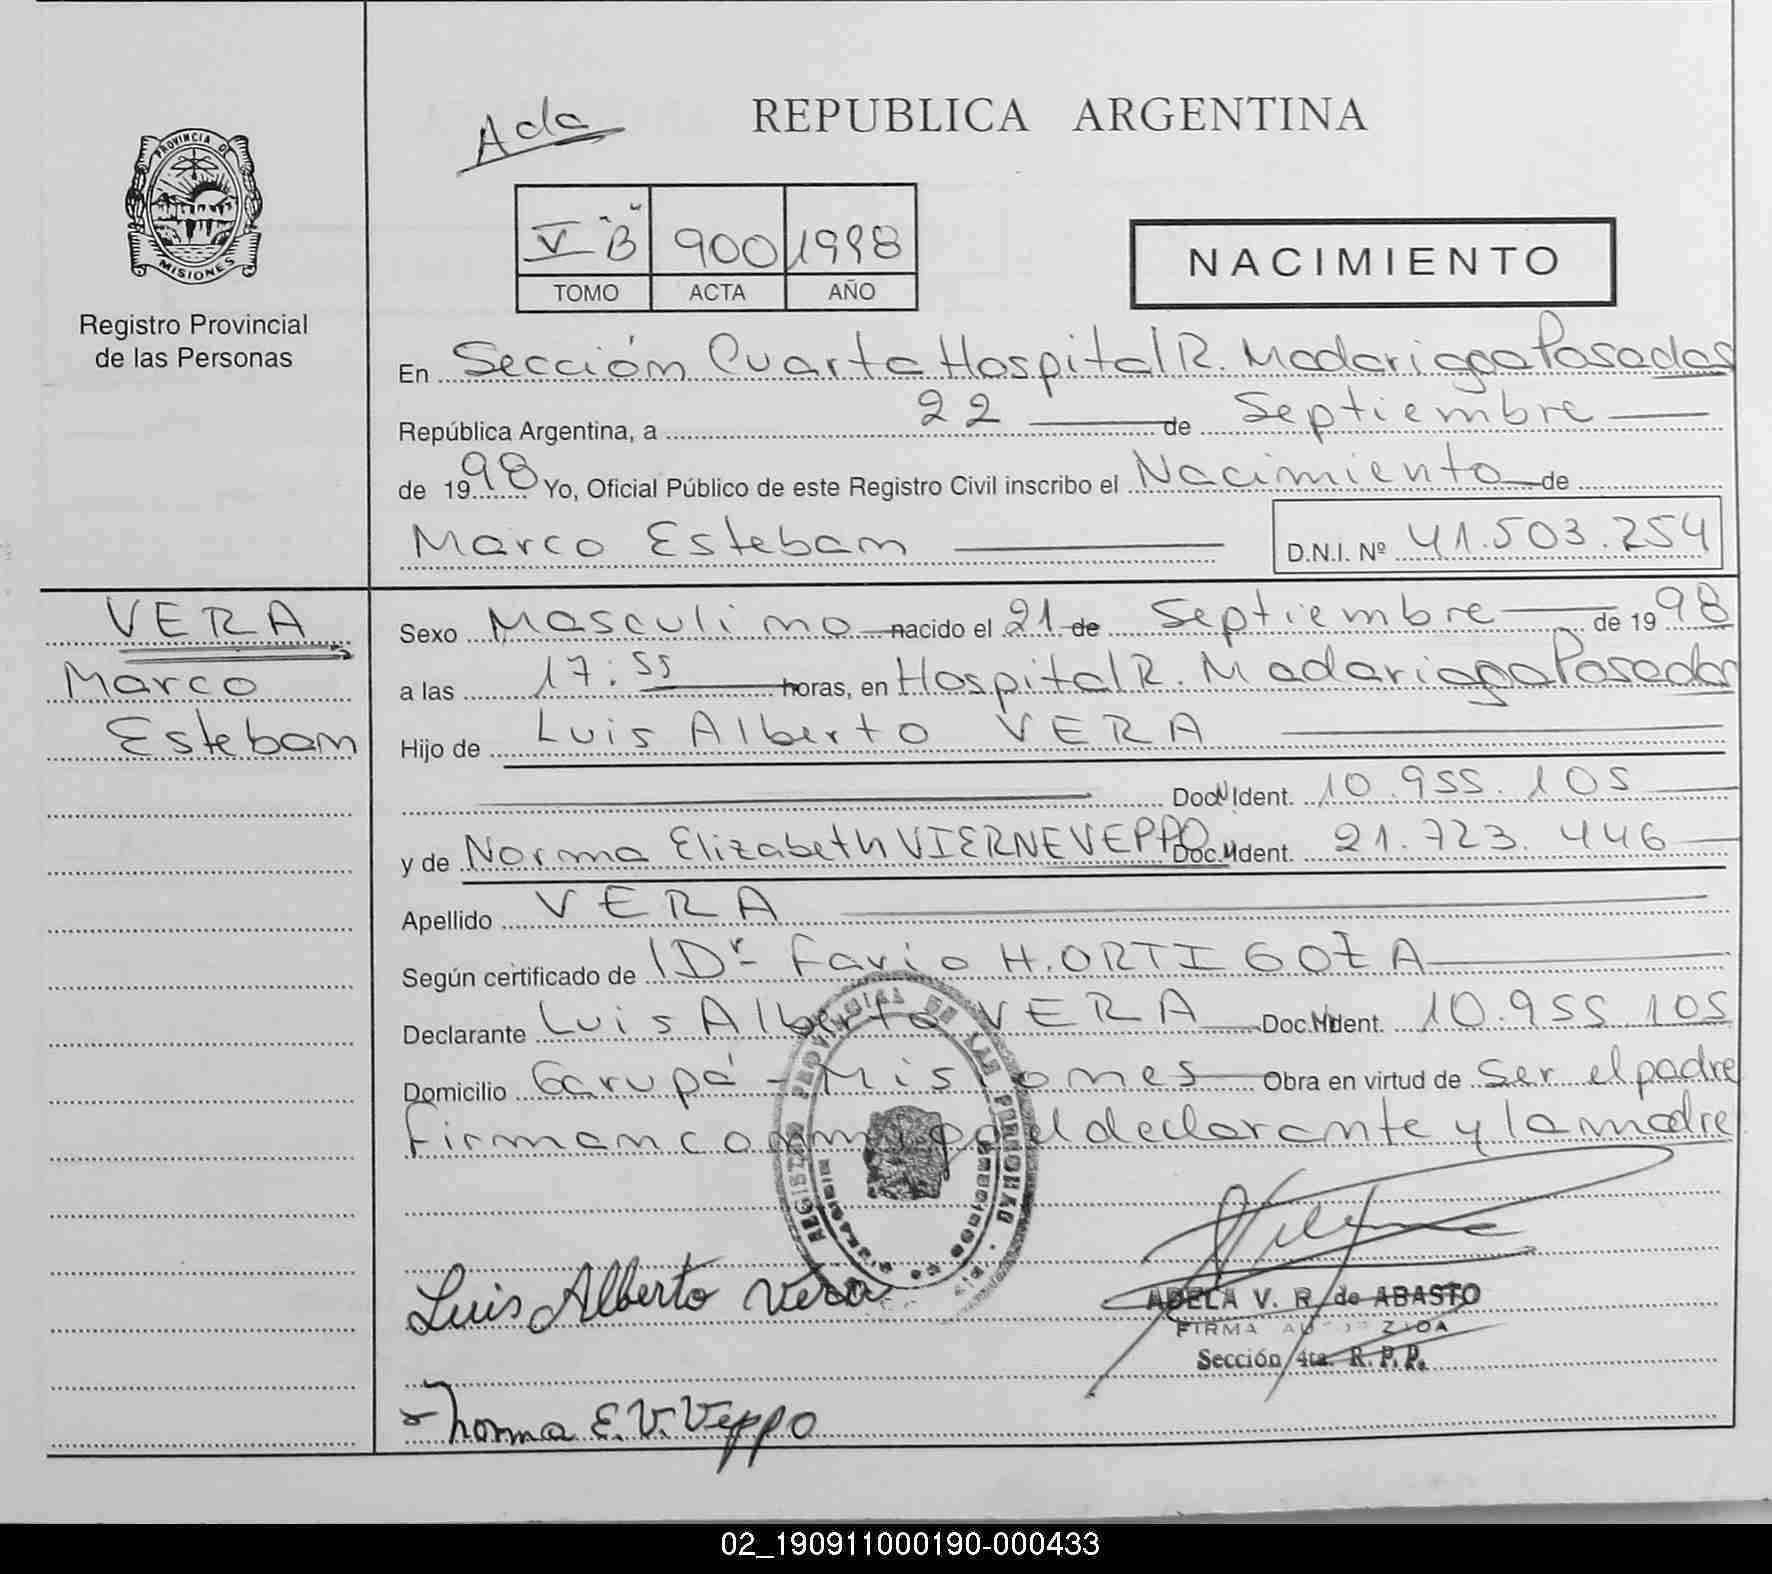 Ada
REPUBLICA ARGENTINA
PROVINCIA DE
MISIONES
Registro Provincial
de las Personas
V "B" 900 1998
TOMO ACTA AÑO
NACIMIENTO
En Sección Cuarta Hospital R. Madariaga Posadas
República Argentina, a 22 de Septiembre
de 1998 Yo, Oficial Público de este Registro Civil inscribo el Nacimiento de
Marco Esteban D.N.I. Nº 41.503.254
VERA
Marco
Esteban
Sexo Masculino nacido el 21 de Septiembre de 1998
a las 17:55 horas, en Hospital R. Madariaga Posadas
Hijo de Luis Alberto VERA
Doc. Ident. 10.955.105
y de Norma Elizabeth VIERNEVEPPO Doc. Ident. 21.723.446
Apellido VERA
Según certificado de Dr Favio H. ORTIGOZA
Declarante Luis Alberto VERA Doc. Ident. 10.955.105
Domicilio Garupá - Misiones Obra en virtud de ser el padre
Firman conmigo el declarante y la madre
REGISTRO PROVINCIAL DE LAS PERSONAS
Luis Alberto Vera
ADELA V. R. de ABASTO
FIRMA AUTORIZADA
Sección 4ta. R. P. P.
Norma E. V. Veppo
02_190911000190-000433